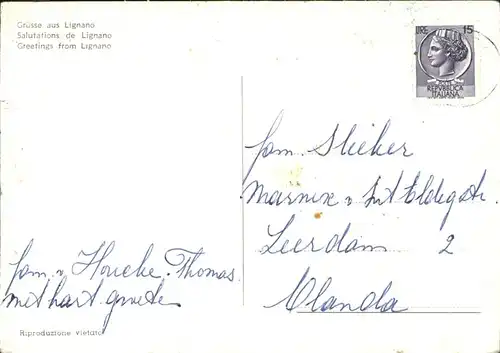 Grüsse aus Lignano
Salutations de Lignano
Greetings from Lignano
LIRE 15
POSTE
REPVBBLICA
ITALIANA
fam. Slieker
Marnix v. St Aldegstr.
Leerdam 2
Olanda
fam. v Houcke-Thomas
met hart. groeten
Riproduzione vietata